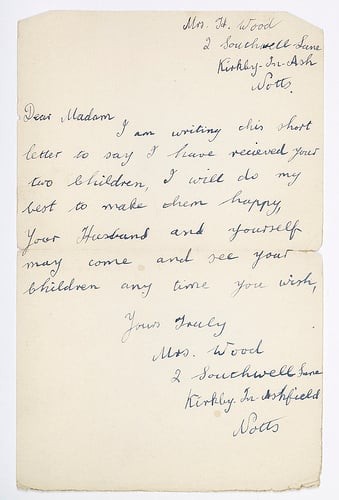 Mrs. H. Wood
2 Southwell Lane
Kirkby-In-Ash
Notts.
Dear Madam
I am writing this short
letter to say I have recieved your
two Children, I will do my
best to make them happy,
Your Husband and yourself
may come and see your
Children any time you wish,
Yours Truly
Mrs. Wood
2 Southwell Lane
Kirkby-In-Ashfield
Notts